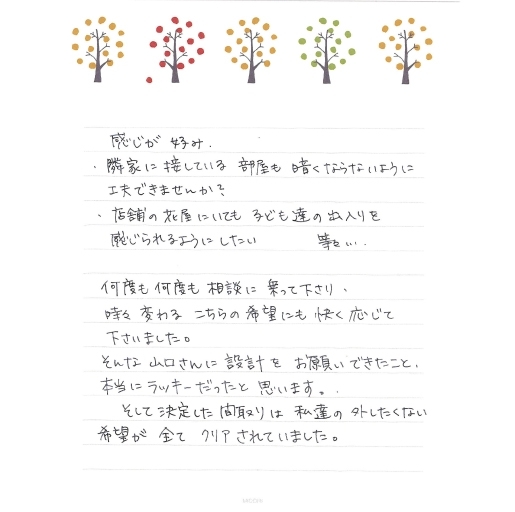 感じが 好み.
・隣家に接している 部屋も 暗くならないように
工夫できませんか?
・店舗の花屋にいても 子ども達の出入りを
感じられるようにしたい 等々...
何度も何度も相談に乗って下さり、
時々変わる こちらの希望にも快く応じて
下さいました。
そんな 山口さんに 設計を お願いできたこと、
本当にラッキーだったと思います。.
そして決定した間取りは 私達の外したくない
希望が 全て クリアされていました。